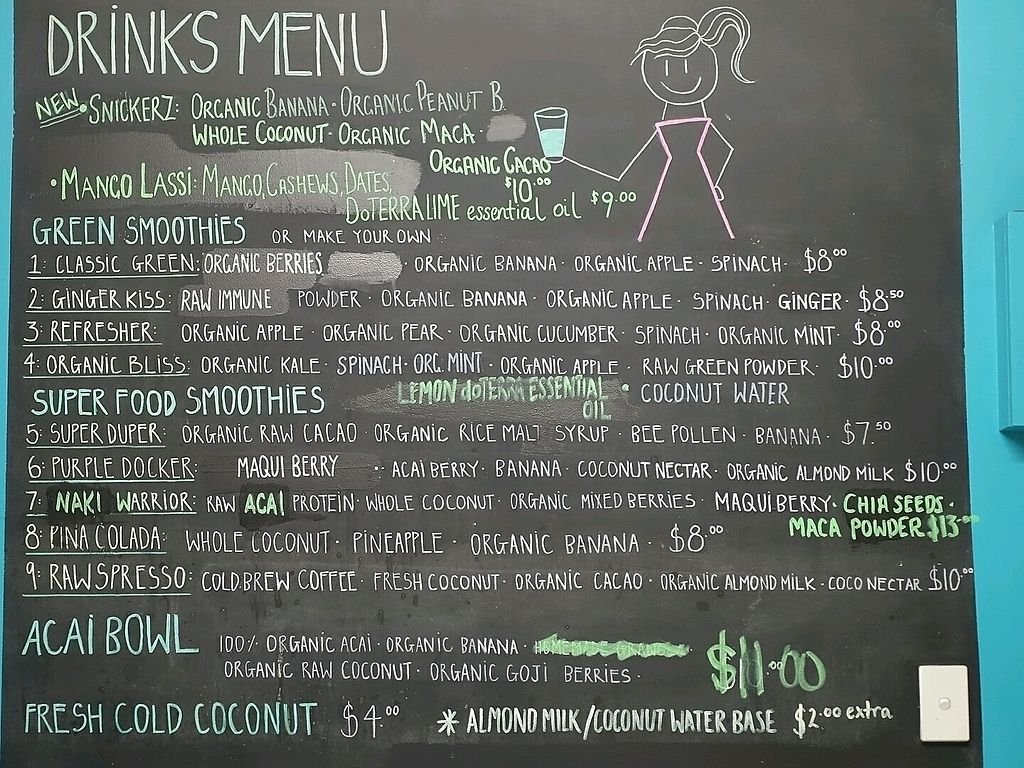 DRINKS MENU
NEW • SNICKERZ: ORGANIC BANANA · ORGANIC PEANUT B.
WHOLE COCONUT · ORGANIC MACA ·
ORGANIC CACAO
$10.00
• MANGO LASSI: MANGO, CASHEWS, DATES,
DoTERRA LIME essential oil $9.00
GREEN SMOOTHIES OR MAKE YOUR OWN
1: CLASSIC GREEN: ORGANIC BERRIES · ORGANIC BANANA · ORGANIC APPLE · SPINACH · $8.00
2: GINGER KISS: RAW IMMUNE POWDER · ORGANIC BANANA · ORGANIC APPLE · SPINACH · GINGER · $8.50
3: REFRESHER: ORGANIC APPLE · ORGANIC PEAR · ORGANIC CUCUMBER · SPINACH · ORGANIC MINT · $8.00
4: ORGANIC BLISS: ORGANIC KALE · SPINACH · ORG. MINT · ORGANIC APPLE · RAW GREEN POWDER · $10.00
LEMON doTERRA ESSENTIAL OIL • COCONUT WATER
SUPER FOOD SMOOTHIES
5: SUPER DUPER: ORGANIC RAW CACAO · ORGANIC RICE MALT SYRUP · BEE POLLEN · BANANA · $7.50
6: PURPLE DOCKER: MAQUI BERRY · ACAI BERRY · BANANA · COCONUT NECTAR · ORGANIC ALMOND MILK $10.00
7: NAKI WARRIOR: RAW ACAI PROTEIN · WHOLE COCONUT · ORGANIC MIXED BERRIES · MAQUI BERRY · CHIA SEEDS ·
MACA POWDER $13.00
8: PINA COLADA: WHOLE COCONUT · PINEAPPLE · ORGANIC BANANA · $8.00
9: RAWSPRESSO: COLD BREW COFFEE · FRESH COCONUT · ORGANIC CACAO · ORGANIC ALMOND MILK · COCO NECTAR $10.00
ACAI BOWL 100% ORGANIC ACAI · ORGANIC BANANA · HOMEMADE GRANOLA
ORGANIC RAW COCONUT · ORGANIC GOJI BERRIES · $11.00
FRESH COLD COCONUT $4.00 * ALMOND MILK/COCONUT WATER BASE $2.00 extra